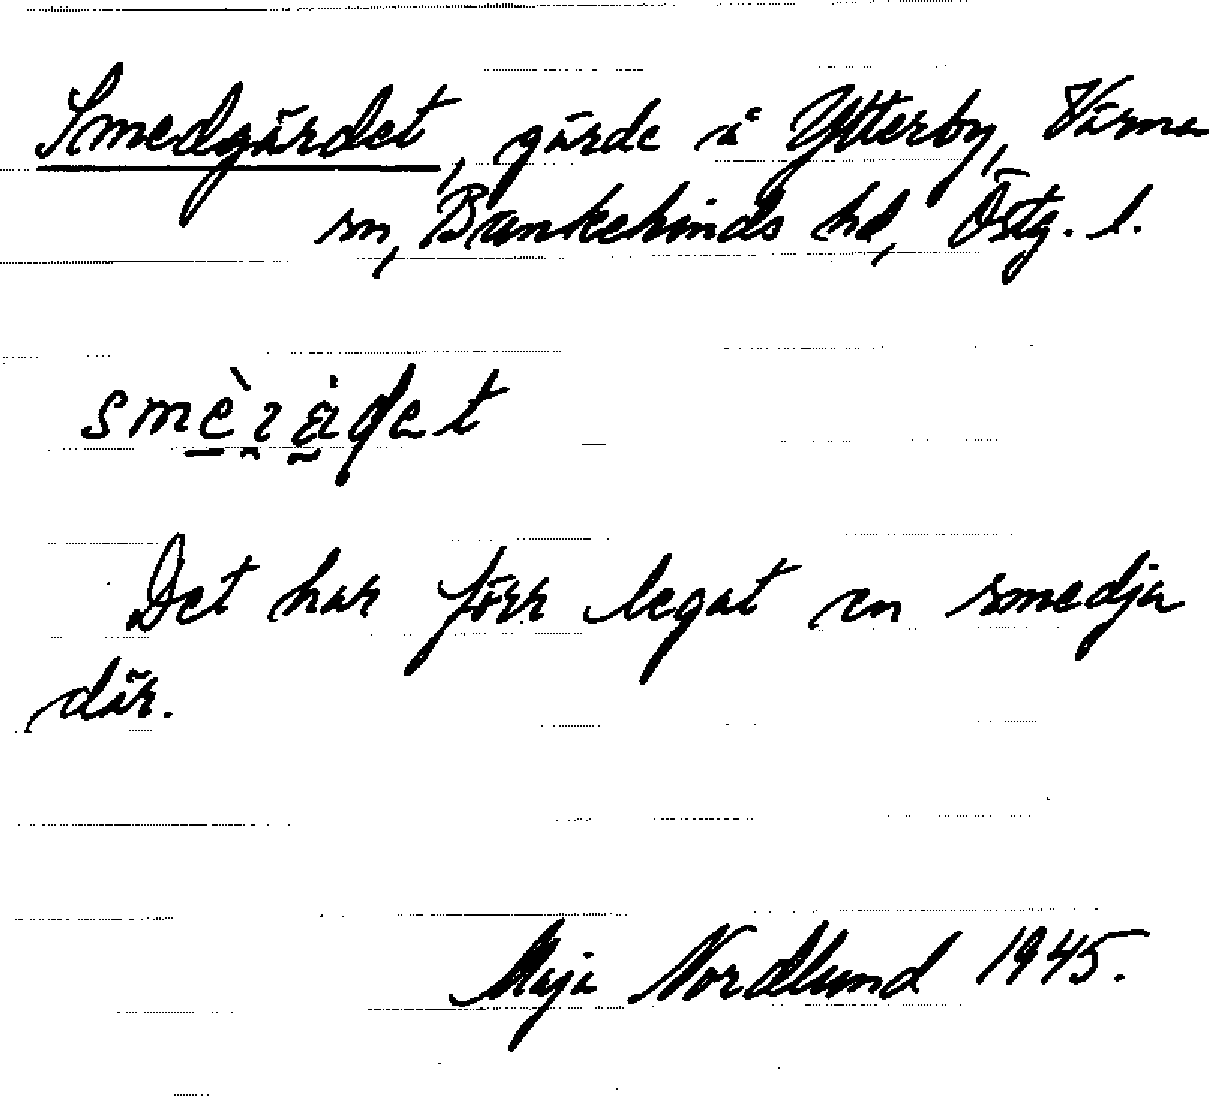 Smedgärdet, gärde i Ytterby, Värna
sn, Bankekinds hd, Östg. l.
Det har förr legat en smedja
där.
Maja Nordlund 1945.